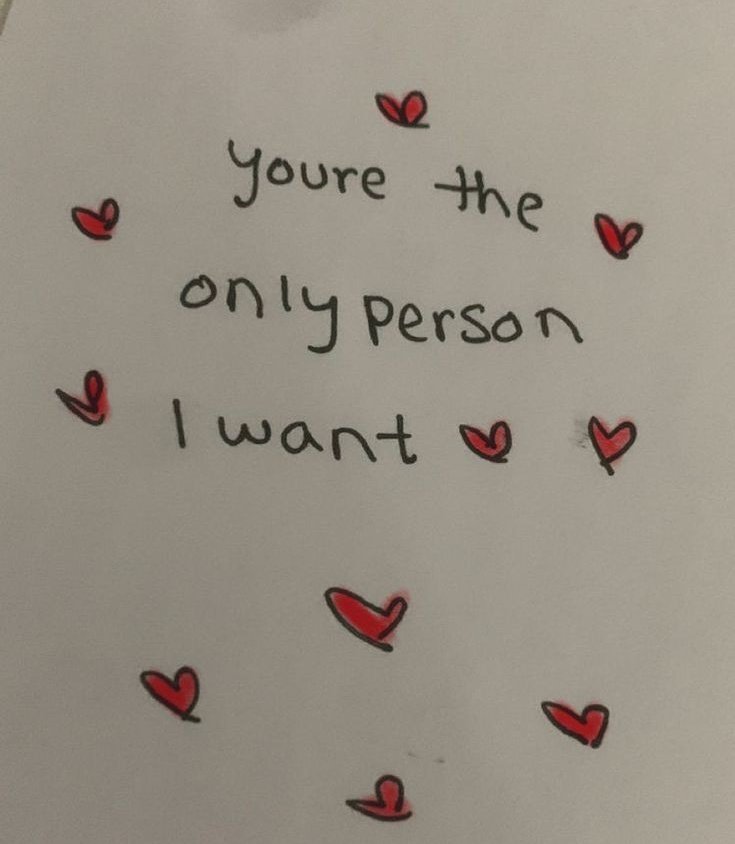 youre the
only person
I want